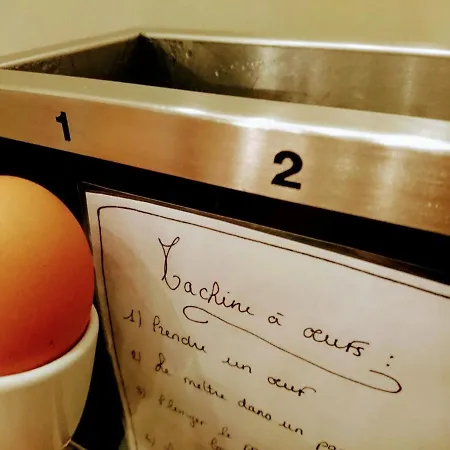 1 2
Machine à œufs :
1) Prendre un œuf
2) Le mettre dans un
3) Plonger le
4)